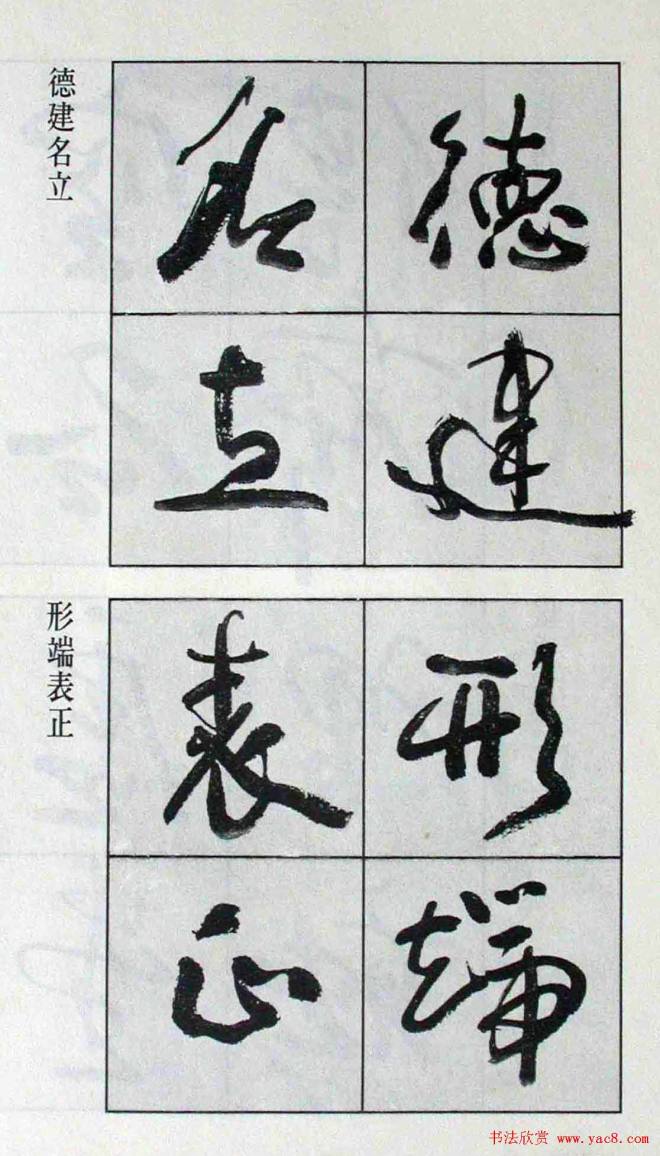 德建
名立
德建名立
形端
表正
形端表正
书法欣赏 www.yac8.com